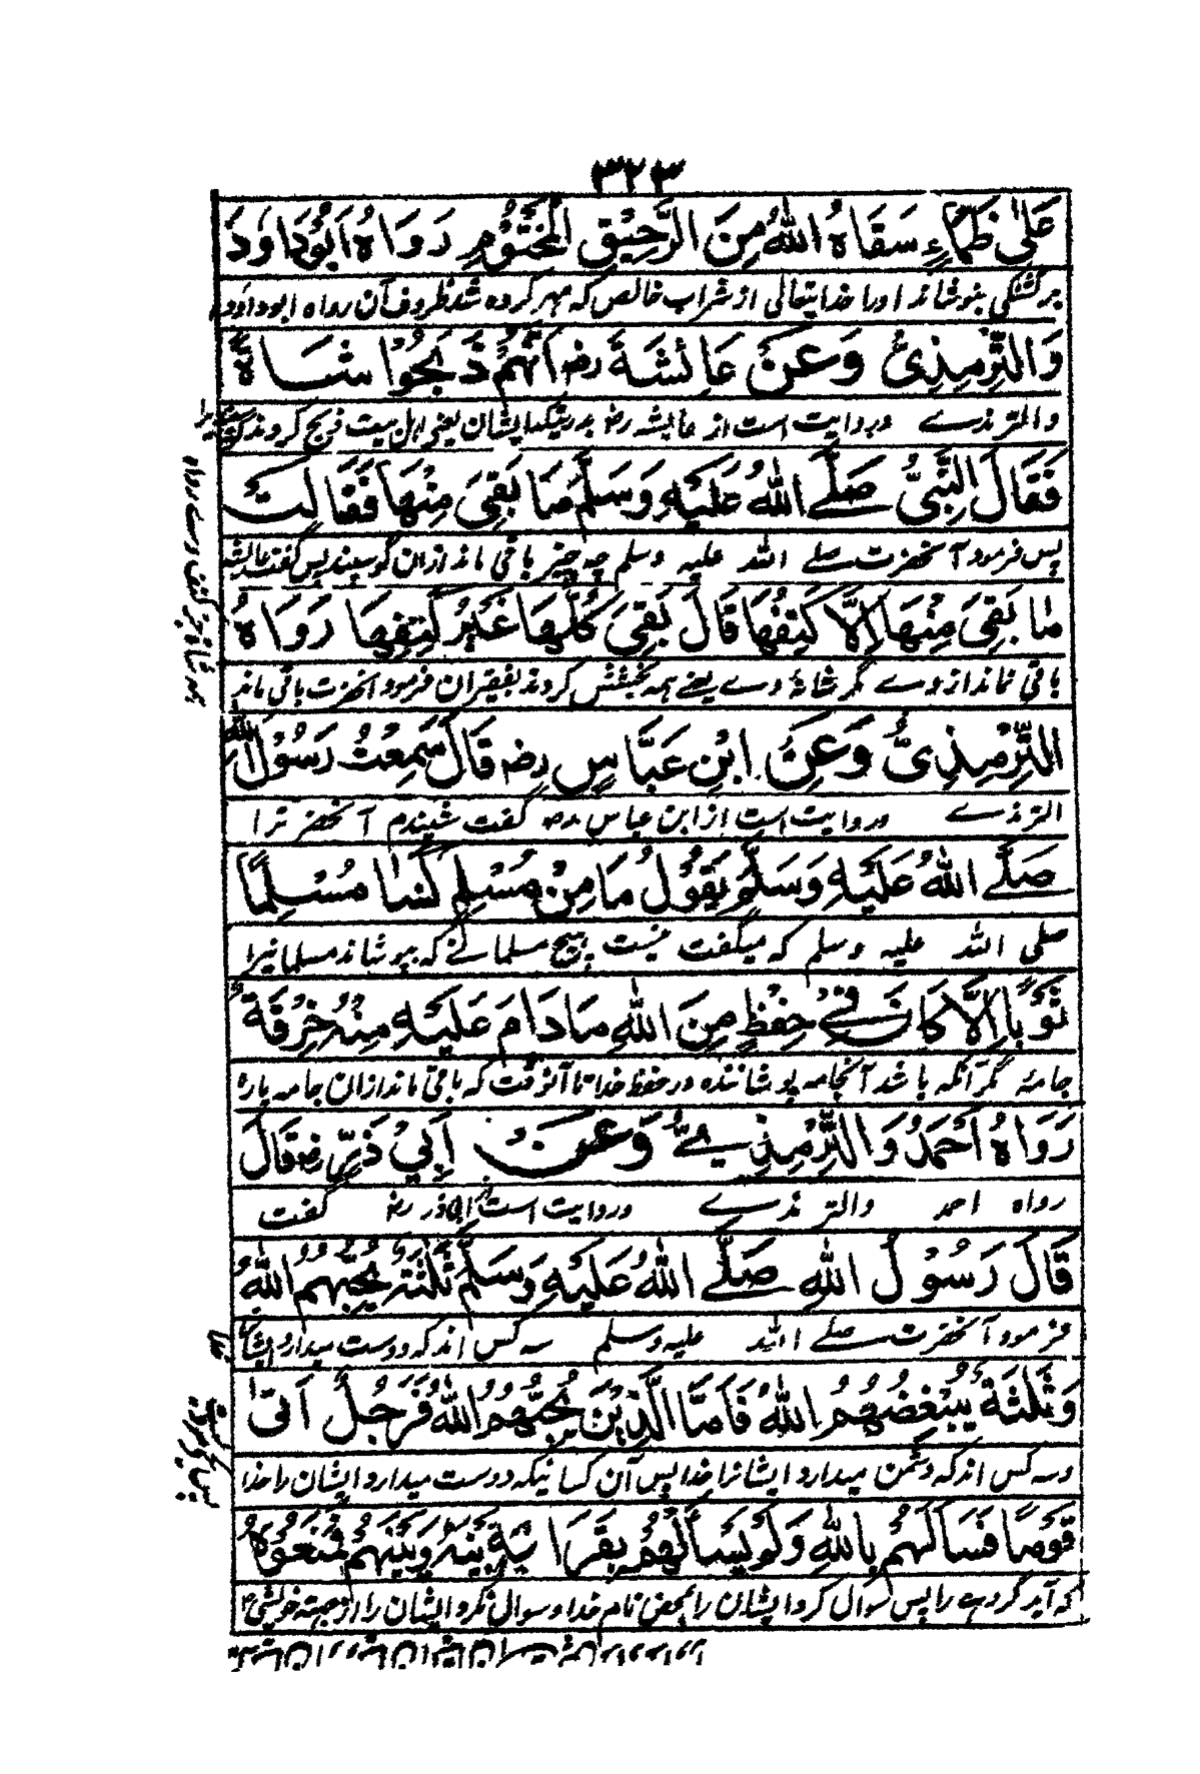 ٣٢٣
عَلٰى ظَمَاءٍ سَقَاهُ اللّٰهُ مِنَ الرَّحِيْقِ الْمَخْتُوْمِ رَوَاهُ اَبُوْدَاوَدَ
بر تشنگی بنوشاند اورا خدایتعالی از شراب خالص که مهر کرده شد ظروف آن رواه ابوداود
وَالتِّرْمِذِىُّ وَعَنْ عَائِشَةَ رض اَنَّهُمْ ذَبَحُوْا شَاةً
والترمذے وروایت است از عایشه رض بدرستیکه ایشان یعنی اهل بیت ذبح کردند
فَقَالَ النَّبِىُّ صَلَّے اللّٰهُ عَلَيْهِ وَسَلَّمَ مَا بَقِىَ مِنْهَا فَقَالَتْ
پس فرمود آنحضرت صلے اللّٰه علیه وسلم چه چیز باقی ماند ازان گوسپند پس گفت عایشه
مَا بَقِىَ مِنْهَا اِلَّا كَتِفُهَا قَالَ بَقِىَ كُلُّهَا غَيْرُ كَتِفِهَا رَوَاهُ
باقی نماند از وے مگر شانهٔ وے یعنے همه بخشش کردند بفقیران فرمود آنحضرت باقی ماند
التِّرْمِذِىُّ وَعَنْ ابْنِ عَبَّاسٍ رض قَالَ سَمِعْتُ رَسُوْلَ اللّٰهِ
الترمذے وروایت است از ابن عباس رض گفت شنیدم آنحضرت را
صَلَّے اللّٰهُ عَلَيْهِ وَسَلَّمَ يَقُوْلُ مَا مِنْ مُسْلِمٍ كَسَا مُسْلِمًا
صلی اللّٰه علیه وسلم که میگفت نیست هیچ مسلمانے که بپوشاند مسلمانیرا
ثَوْبًا اِلَّا كَانَ فِے حِفْظٍ مِنَ اللّٰهِ مَادَامَ عَلَيْهِ مِنْهُ خِرْقَةٌ
جامهٔ مگر آنکه باشد آنجامه پوشاننده در حفظ خدا تا آنوقت که باقی ماند ازان جامه پارهٔ
رَوَاهُ اَحْمَدُ وَالتِّرْمِذِےُّ وَعَنْ اَبِىْ ذَرٍّ رض قَالَ
رواه احمد والترمذے وروایت است از ابی ذر رض گفت
قَالَ رَسُوْلُ اللّٰهِ صَلَّے اللّٰهُ عَلَيْهِ وَسَلَّمَ ثَلٰثَةٌ يُحِبُّهُمُ اللّٰهُ
فرمود آنحضرت صلے اللّٰه علیه وسلم سه کس اند که دوست میدارد ایشانرا
وَثَلٰثَةٌ يُبْغِضُهُمُ اللّٰهُ فَاَمَّا الَّذِيْنَ يُحِبُّهُمُ اللّٰهُ فَرَجُلٌ اَتٰى
وسه کس اند که دشمن میدارد ایشانرا خدا پس آن کسانیکه دوست میدارد ایشان را خدا
قَوْمًا فَسَاَلَهُمْ بِاللّٰهِ وَلَمْ يَسْاَلْهُمْ بِقَرَابَةٍ بَيْنَهُ وَبَيْنَهُمْ فَمَنَعُوْهُ
که آید گروهے را پس سوال کرد ایشان را بمحض نام خدا و سوال نکرد ایشان را از جهته خویشی